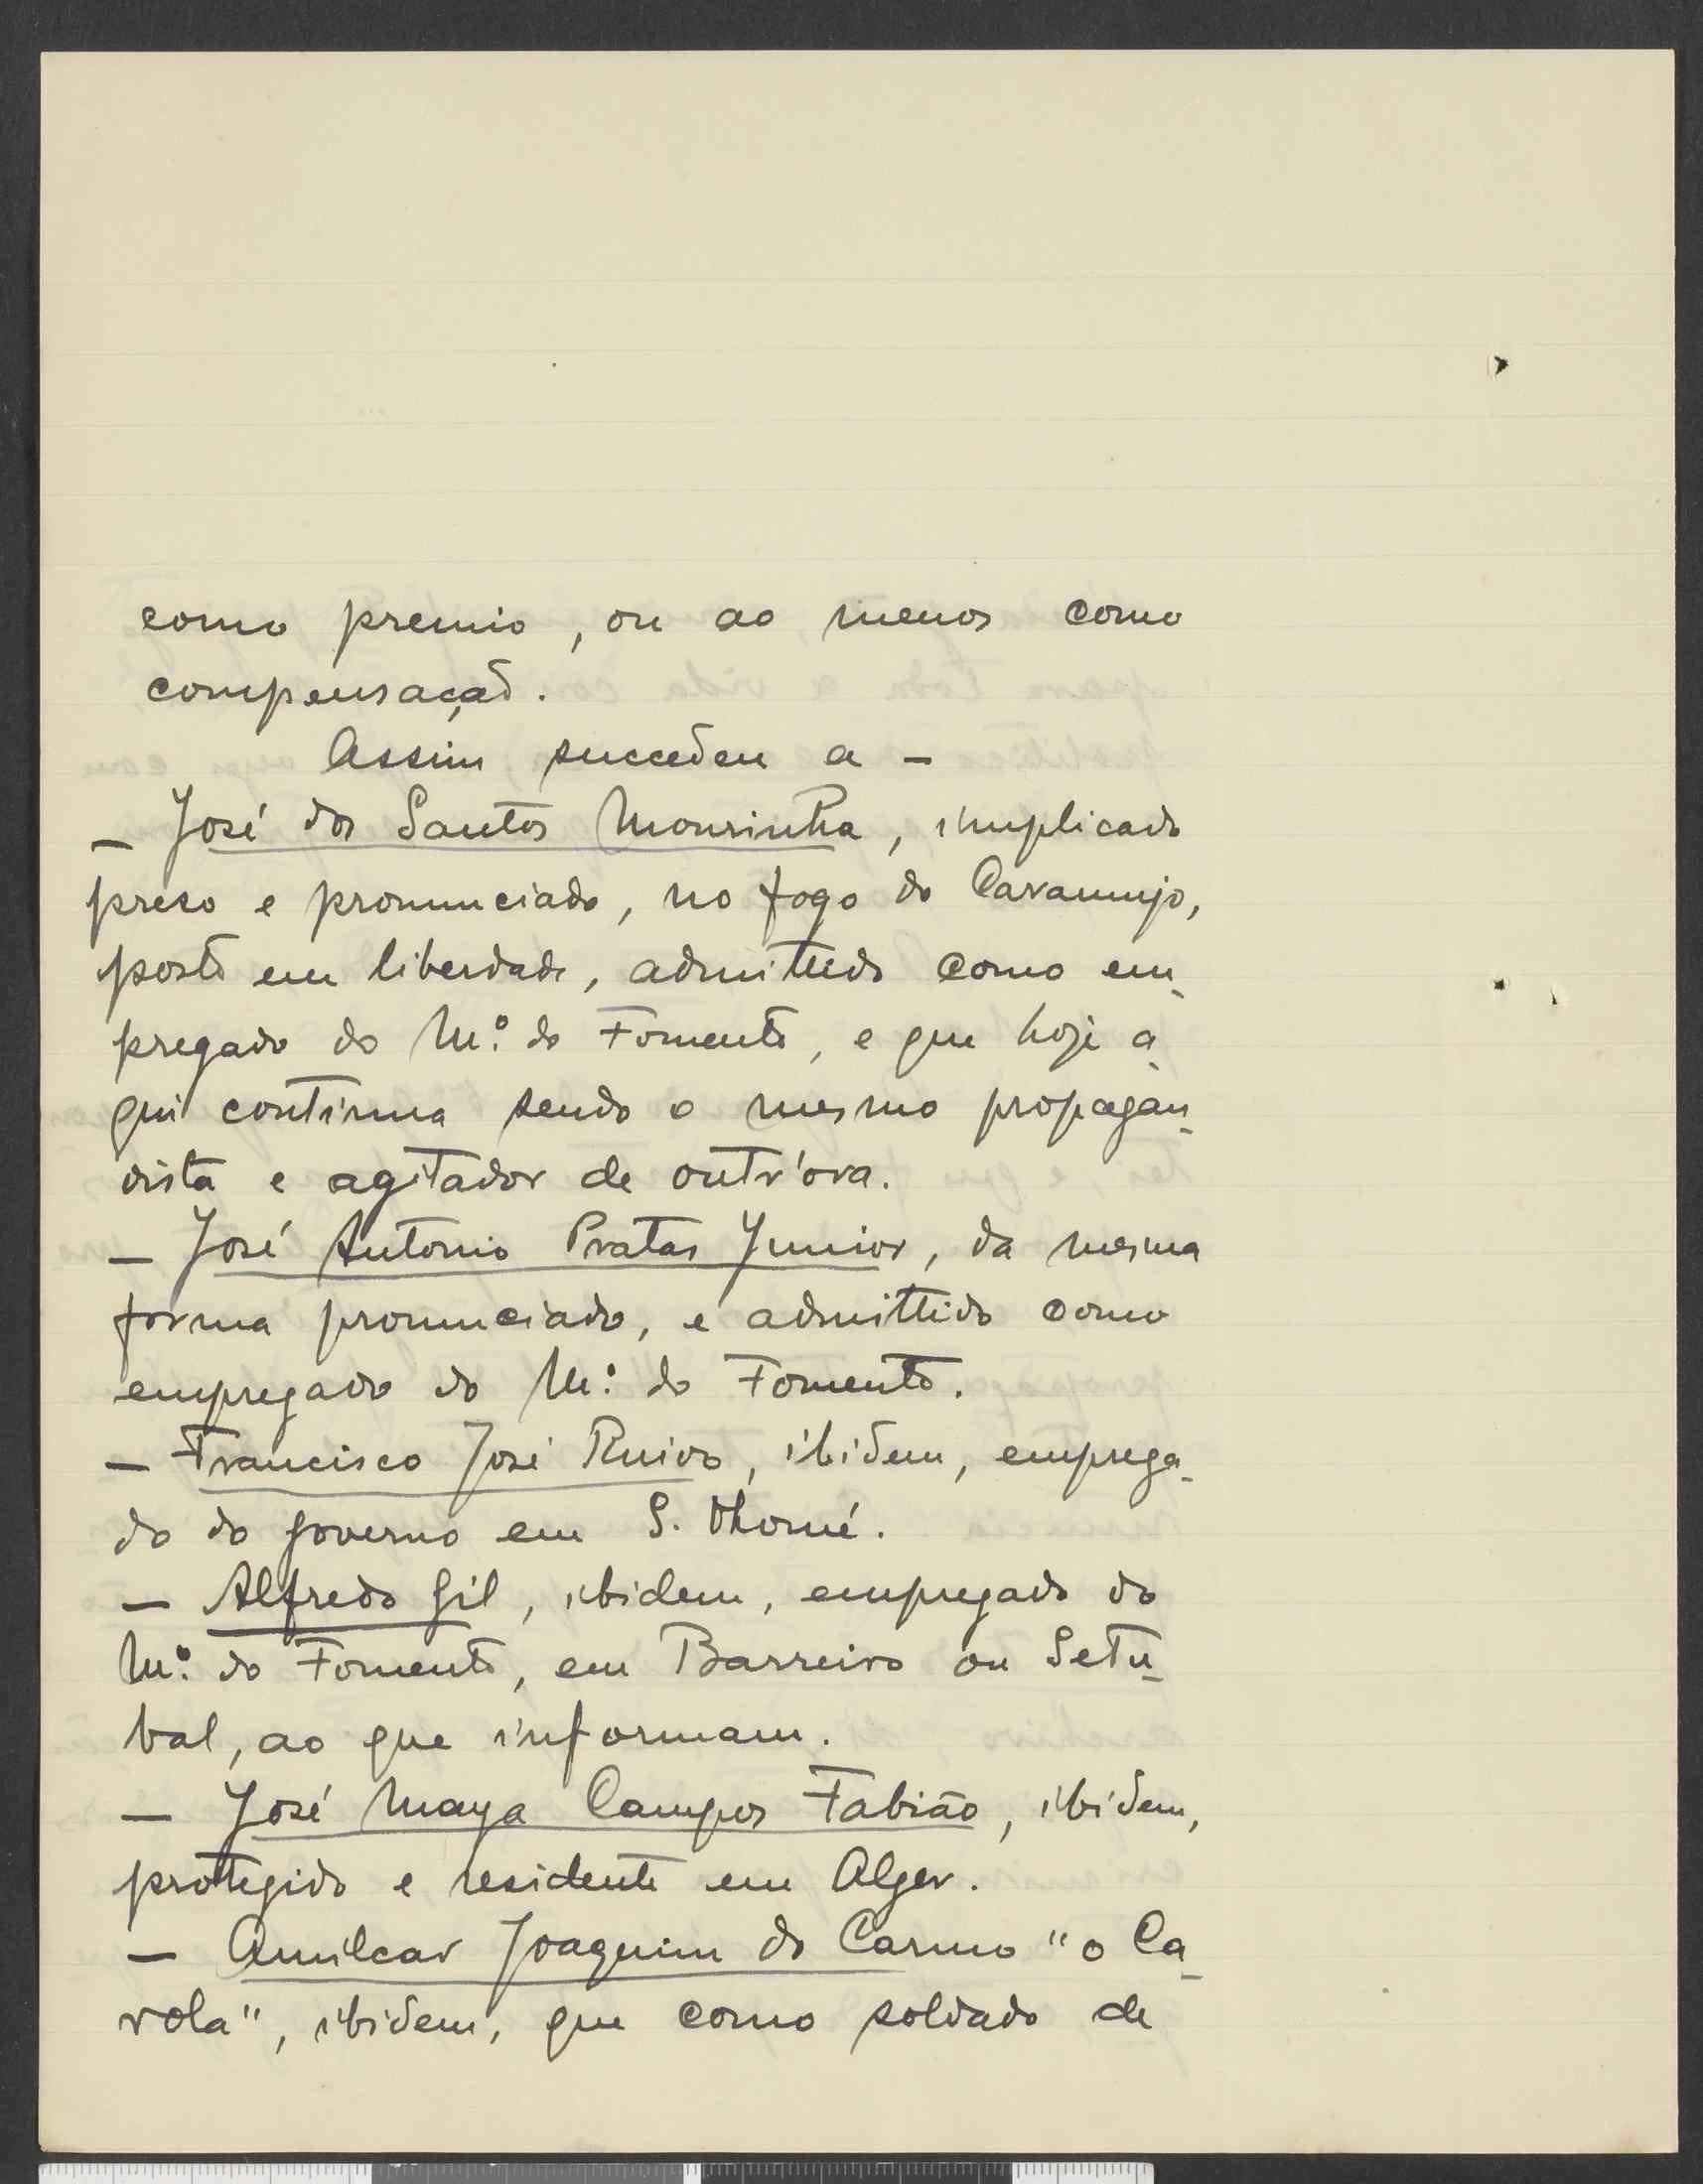 como premio, ou ao menos como
compensação.
Assim succedeu a -
- José dos Santos Mourinha, implicado
preso e pronunciado, no fogo do Caramujo,
posto em liberdade, admittido como em-
pregado do M.º do Fomento, e que hoje a-
qui continua sendo o mesmo propagan-
dista e agitador de outr'ora.
- José Antonio Pratas Junior, da mesma
forma pronunciado, e admittido como
empregado do M.º do Fomento.
- Francisco José Ruivo, ibidem, emprega-
do do governo em S. Thomé.
- Alfredo Gil, ibidem, empregado do
M.º do Fomento, em Barreiro ou Setu-
bal, ao que informam.
- José Maya Campos Fabião, ibidem,
protegido e residente em Alger.
- Amilcar Joaquim do Carmo "o Ca-
rola", ibidem, que como soldado de